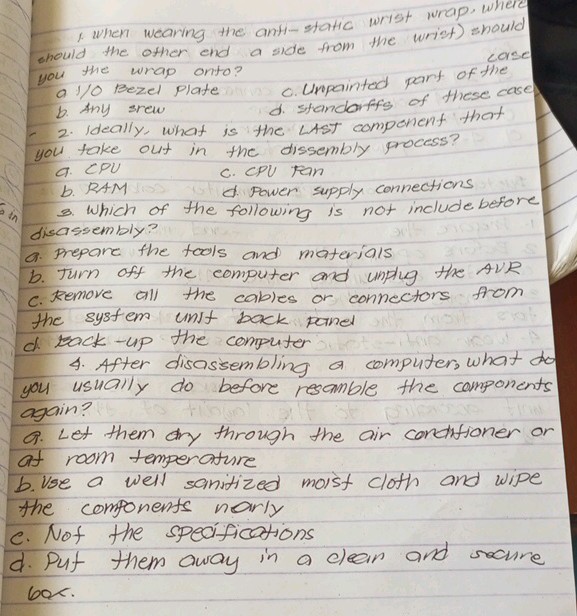 1. when wearing the anti-static wrist wrap, where
should the other end a side from the wrist) should
you the wrap onto?
a I/O Bezel plate c. Unpainted part of the case
b. Any srew d. standorffs of these case
2. Ideally, what is the LAST component that
you take out in the dissembly process?
a. CPU c. CPU Fan
b. RAM d. Power supply connections
3. Which of the following is not include before
disassembly?
a. Prepare the tools and materials
b. Turn off the computer and unplug the AVR
c. Remove all the cables or connectors from
the system unit back panel
d. Back-up the computer
4. After disassembling a computer, what do
you usually do before resamble the components
again?
a. Let them dry through the air conditioner or
at room temperature
b. Use a well sanitized moist cloth and wipe
the components narly
c. Not the specifications
d. Put them away in a clean and secure
box.